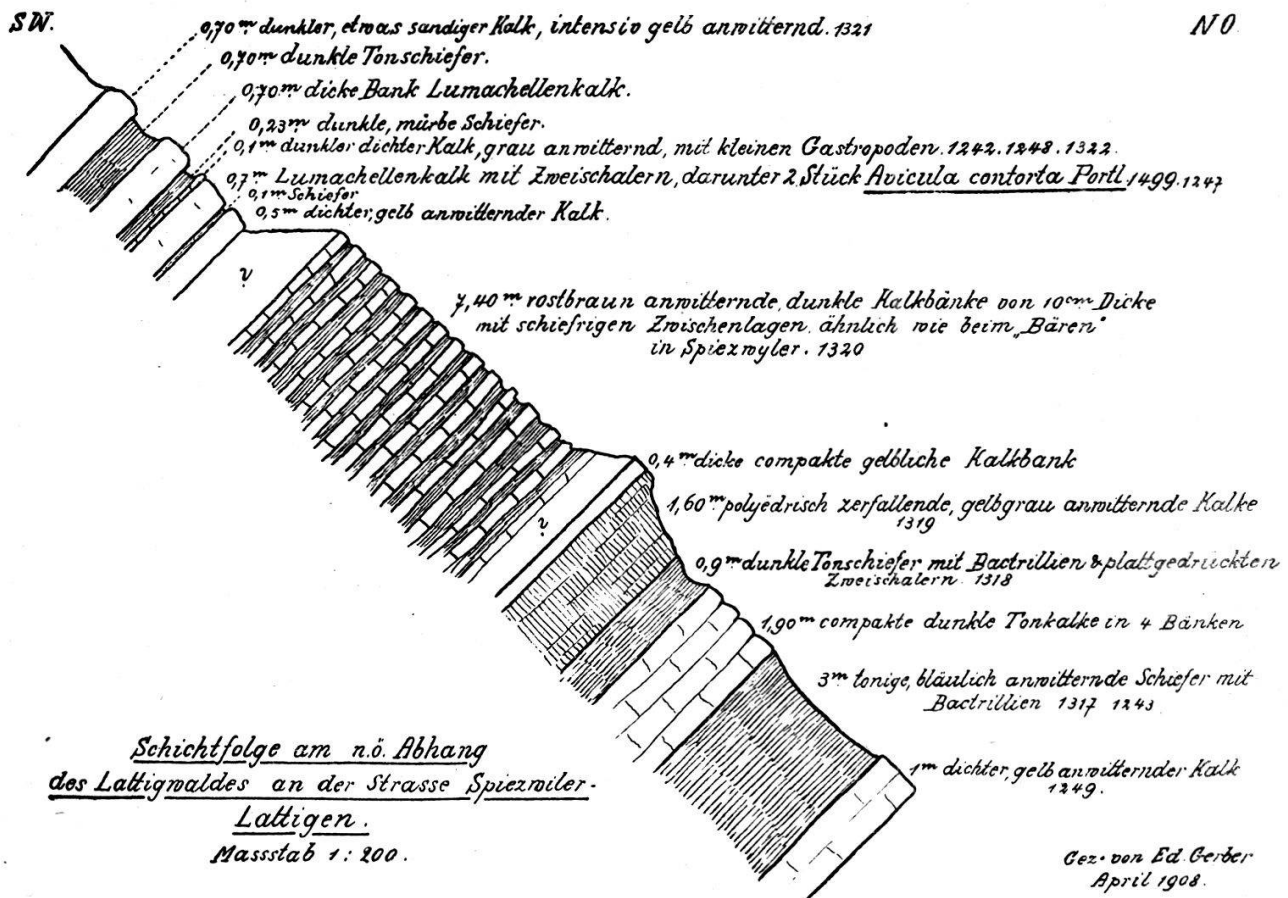 SW.
NO
0,70m dunkler, etwas sandiger Kalk, intensiv gelb anwitternd. 1321
0,70m dunkle Tonschiefer.
0,70m dicke Bank Lumachellenkalk.
0,23m dunkle, mürbe Schiefer.
0,1m dunkler dichter Kalk, grau anwitternd, mit kleinen Gastropoden. 1242. 1248. 1322.
0,7m Lumachellenkalk mit Zweischalern, darunter 2 Stück Avicula contorta Portl. 1499. 1247
0,1m Schiefer
0,5m dichter, gelb anwitternder Kalk.
?
7,40m rostbraun anwitternde, dunkle Kalkbänke von 10cm Dicke
mit schiefrigen Zwischenlagen, ähnlich wie beim „Bären"
in Spiezwyler. 1320
0,4m dicke compakte gelbliche Kalkbank
?
1,60m polyëdrisch zerfallende, gelbgrau anwitternde Kalke
1319
0,9m dunkle Tonschiefer mit Bactrillien & plattgedrückten
Zweischalern. 1318
1,90m compakte dunkle Tonkalke in 4 Bänken
3m tonige, bläulich anwitternde Schiefer mit
Bactrillien 1317 1243
1m dichter, gelb anwitternder Kalk
1249.
Schichtfolge am n.ö. Abhang
des Lattigwaldes an der Strasse Spiezwiler-
Lattigen.
Massstab 1:200.
Gez. von Ed. Gerber
April 1908.